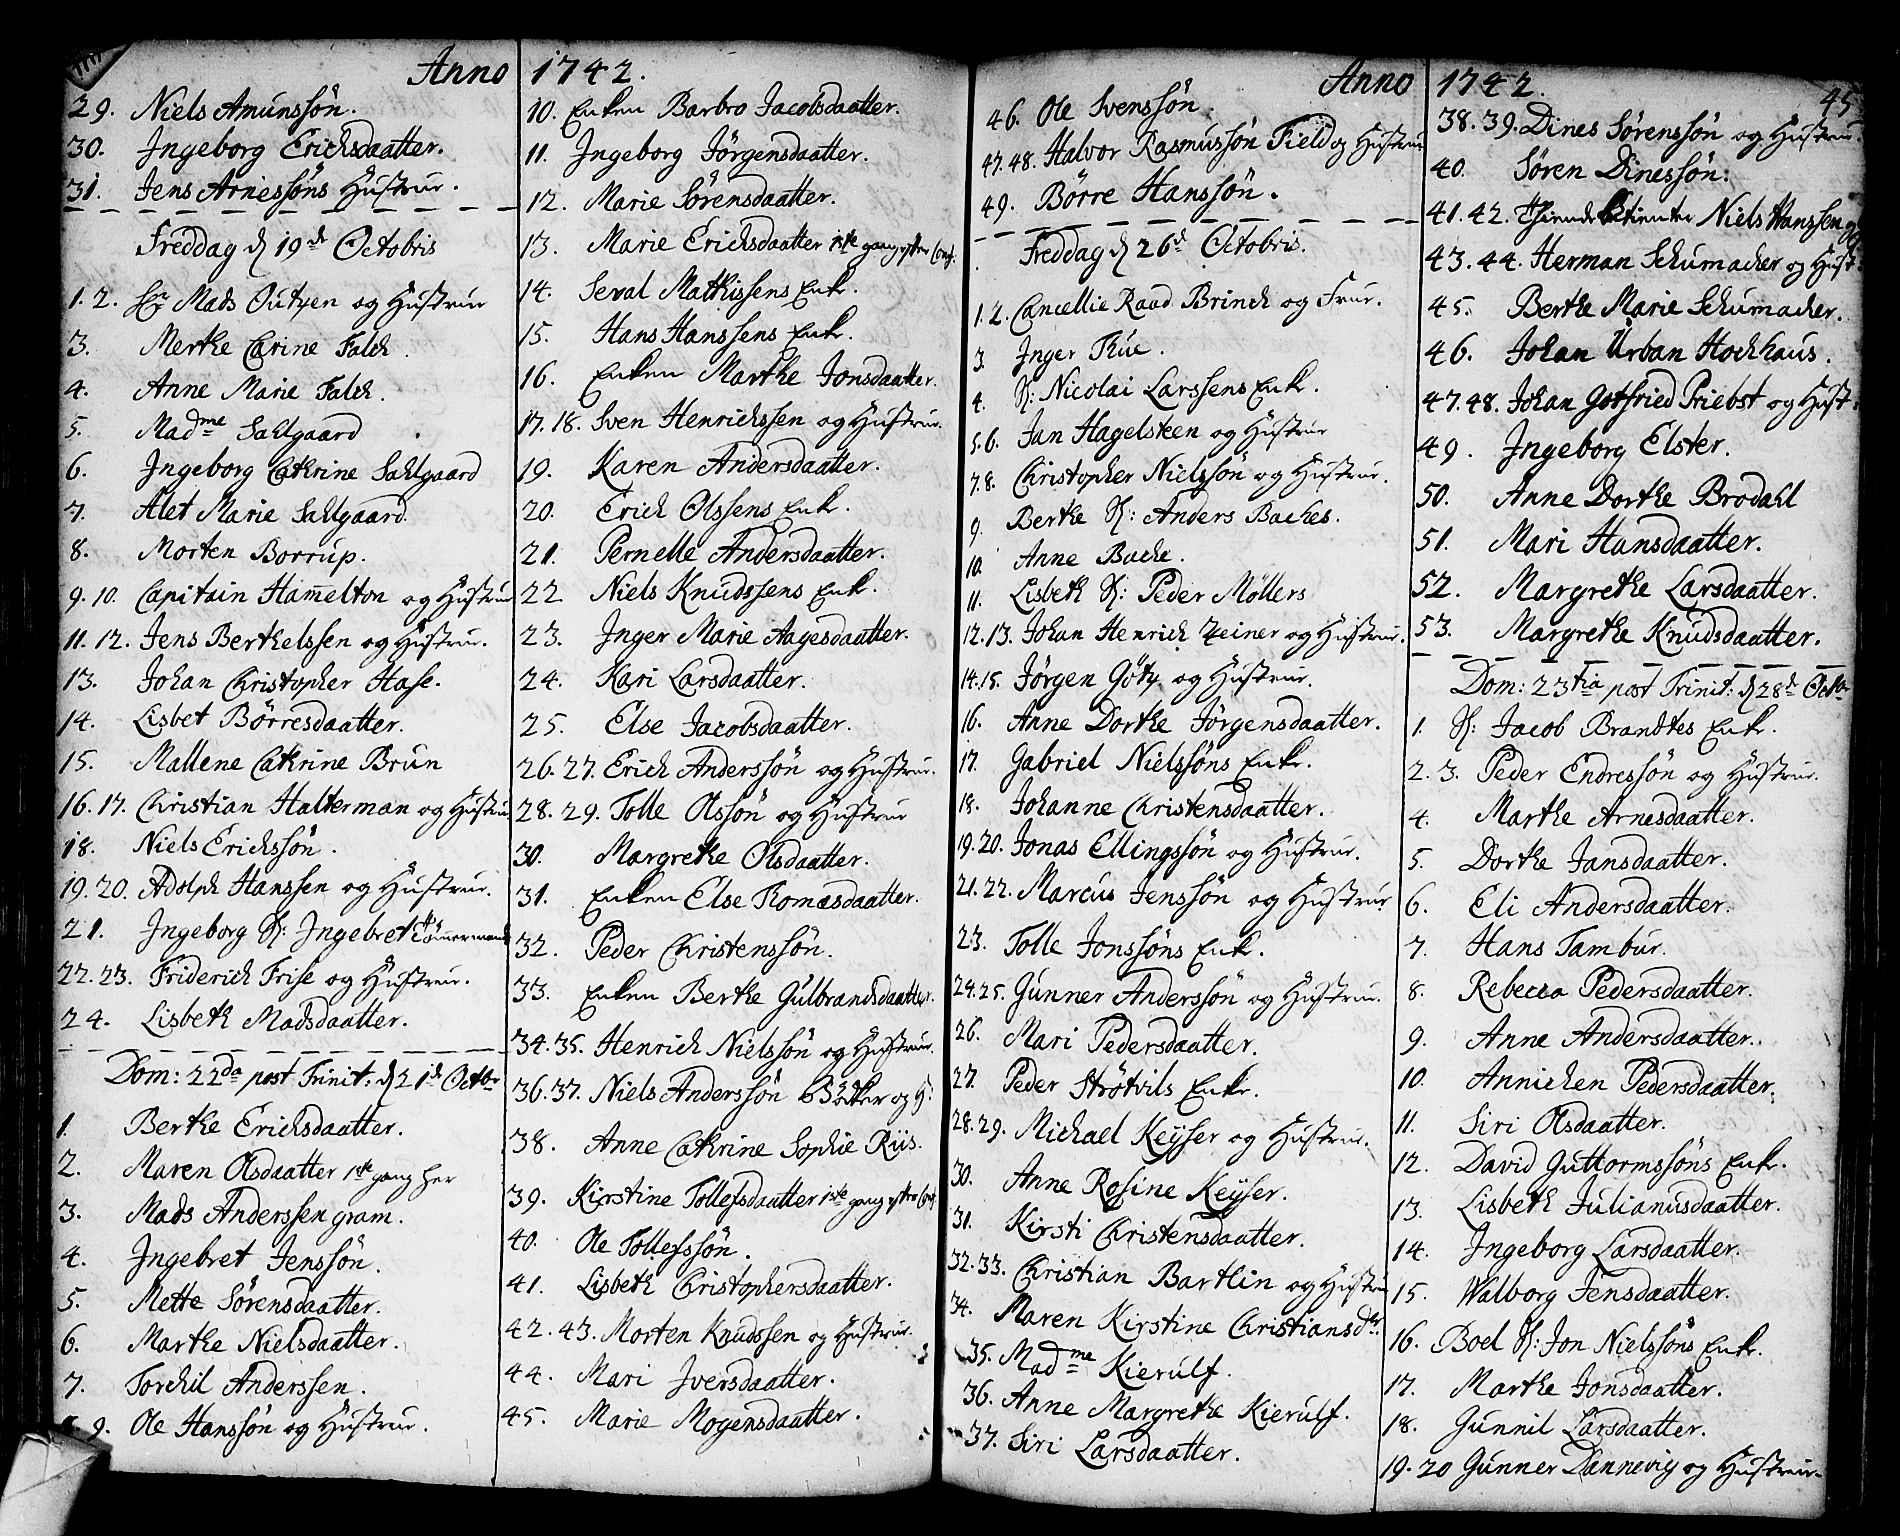 Anno 1742.
29. Niels Amunssön.
30. Jngeborg Erichsdaatter.
31. Jens Arnessöns Hustrue.
Freddag d 19de Octobris
1. 2. Sr Mads Outzen og Hustrue
3. Merthe Carine Falch.
4. Anne Marie Falch.
5. Madme Sahlgaard
6. Jngeborg Cathrine Sahlgaard
7. Alet Marie Sahlgaard.
8. Morten Borrup.
9. 10. Capitain Hamelton og Hustrue
11. 12. Jens Berthelssen og Hustrue.
13. Johan Christopher Hase.
14. Lisbet Börresdaatter.
15. Mallene Cathrine Brun
16. 17. Christian Halterman og Hustrue
18. Niels Erichssön.
19. 20. Adolph Hanssen og Hustrue.
21. Jngeborg S: Jngebret Tömmermands
22. 23. Friderich Frise og Hustrue.
24. Lisbeth Madsdaatter.
Dom: 22da post Trinit: d 21de Octobr
1. Berthe Erichsdaatter.
2. Maren Olsdaatter 1ste gang her
3. Mads Anderssen gram.
4. Jngebret Jenssön.
5. Mette Sörensdaatter.
6. Marthe Nielsdaatter.
7. Torchil Anderssen.
8. 9. Ole Hanssön og Hustrue.
10. Enken Barbro Jacobsdaatter.
11. Jngeborg Jörgensdaatter.
12. Marie Sörensdaatter.
13. Marie Erichsdaatter 1ste gang efter Conf.
14. Seval Mathissens Enke.
15. Hans Hanssens Enke.
16. Enken Marthe Jonsdaatter.
17. 18. Sven Henrichssen og Hustrue.
19. Karen Andersdaatter.
20. Erich Olssens Enke.
21. Pernelle Andersdaatter.
22. Niels Knudssens Enke.
23. Jnger Marie Aagesdaatter.
24. Kari Larsdaatter.
25. Else Jacobsdaatter.
26. 27. Erich Anderssön og Hustrue.
28. 29. Tolle Olssön og Hustrue
30. Margrethe Olsdaatter.
31. Enken Else Thomasdaatter.
32. Peder Christenssön.
33. Enken Berthe Gulbrandsdaatter.
34. 35. Henrich Nielssön og Hustrue.
36. 37. Niels Anderssön Böcker og H:
38. Anne Cathrine Sophie Riis.
39. Kirstine Tollefsdaatter 1ste gang efter Conf.
40. Ole Tollefssön.
41. Lisbeth Christophersdaatter.
42. 43. Morten Knudssen og Hustrue.
44. Mari Jversdaatter.
45. Marie Mogensdaatter.
Anno 1742.
45
46. Ole Svenssön.
47. 48. Halvor Rasmussön Field og Hustrue
49. Börre Hanssön.
Freddag d 26de Octobris.
1. 2. Cancellie Raad Brinch og Frue.
3. Jnger Thue.
4. S: Nicolai Larssens Enke.
5. 6. Jan Hagelsteen og Hustrue
7. 8. Christopher Nielssön og Hustrue.
9. Berthe S: Anders Baches.
10. Anne Bache.
11. Lisbeth S: Peder Möllers
12. 13. Johan Henrich Zeiner og Hustrue.
14. 15. Jörgen Götz og Hustrue.
16. Anne Dorthe Jörgensdaatter.
17. Gabriel Nielssöns Enke.
18. Johanne Christensdaatter.
19. 20. Jonas Ellingssön og Hustrue.
21. 22. Marcus Jenssön og Hustrue
23. Tolle Jonssöns Enke.
24. 25. Gunner Anderssön og Hustrue.
26. Mari Pedersdaatter.
27. Peder Strötvils Enke.
28. 29. Michael Keyser og Hustrue.
30. Anne Rosine Keyser.
31. Kirsti Christensdaatter.
32. 33. Christian Bartlin og Hustrue
34. Maren Kirstine Christiansdtr.
35. Madme Kierulf.
36. Anne Margrethe Kierulf.
37. Siri Larsdaatter.
38. 39. Dines Sörenssön og Hustrue.
40. Sören Dinessön.
41. 42. Niels Hanssen og
43. 44. Herman Schumacher og Hust:
45. Berthe Marie Schumacher.
46. Johan Urban Hochhaus.
47. 48. Johan Gotfried Priebst og Hust:
49. Jngeborg Elster.
50. Anne Dorthe Brodahl
51. Mari Hansdaatter.
52. Margrethe Larsdaatter.
53. Margrethe Knudsdaatter.
Dom: 23tia post Trinit: d 28de Octobr
1. S: Jacob Brandtes Enke.
2. 3. Peder Endressön og Hustrue.
4. Marthe Arnesdaatter.
5. Dorthe Jansdaatter.
6. Eli Andersdaatter.
7. Hans Tambur.
8. Rebecca Pedersdaatter.
9. Anne Andersdaatter.
10. Annichen Pedersdaatter.
11. Siri Olsdaatter.
12. David Guttormssöns Enke.
13. Lisbeth Julianusdaatter.
14. Jngeborg Larsdaatter.
15. Walborg Jensdaatter.
16. Boel S: Jon Nielssöns Enke.
17. Marthe Jonsdaatter.
18. Gunnil Larsdaatter.
19. 20 Gunner Dannevig og Hustrue.